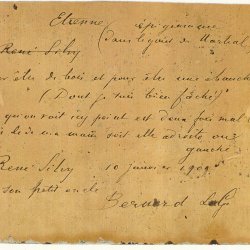 Etienne
épigramme
(dans le goût de Martial
René Silvy
de bois et pour être une ébauche
(Dont je suis bien fâché)
qu'on voit icy peint est deux fois mal
ma main soit elle adroite ou
gauche.
René Silvy 10 janvier 1909
son petit oncle
Bernard